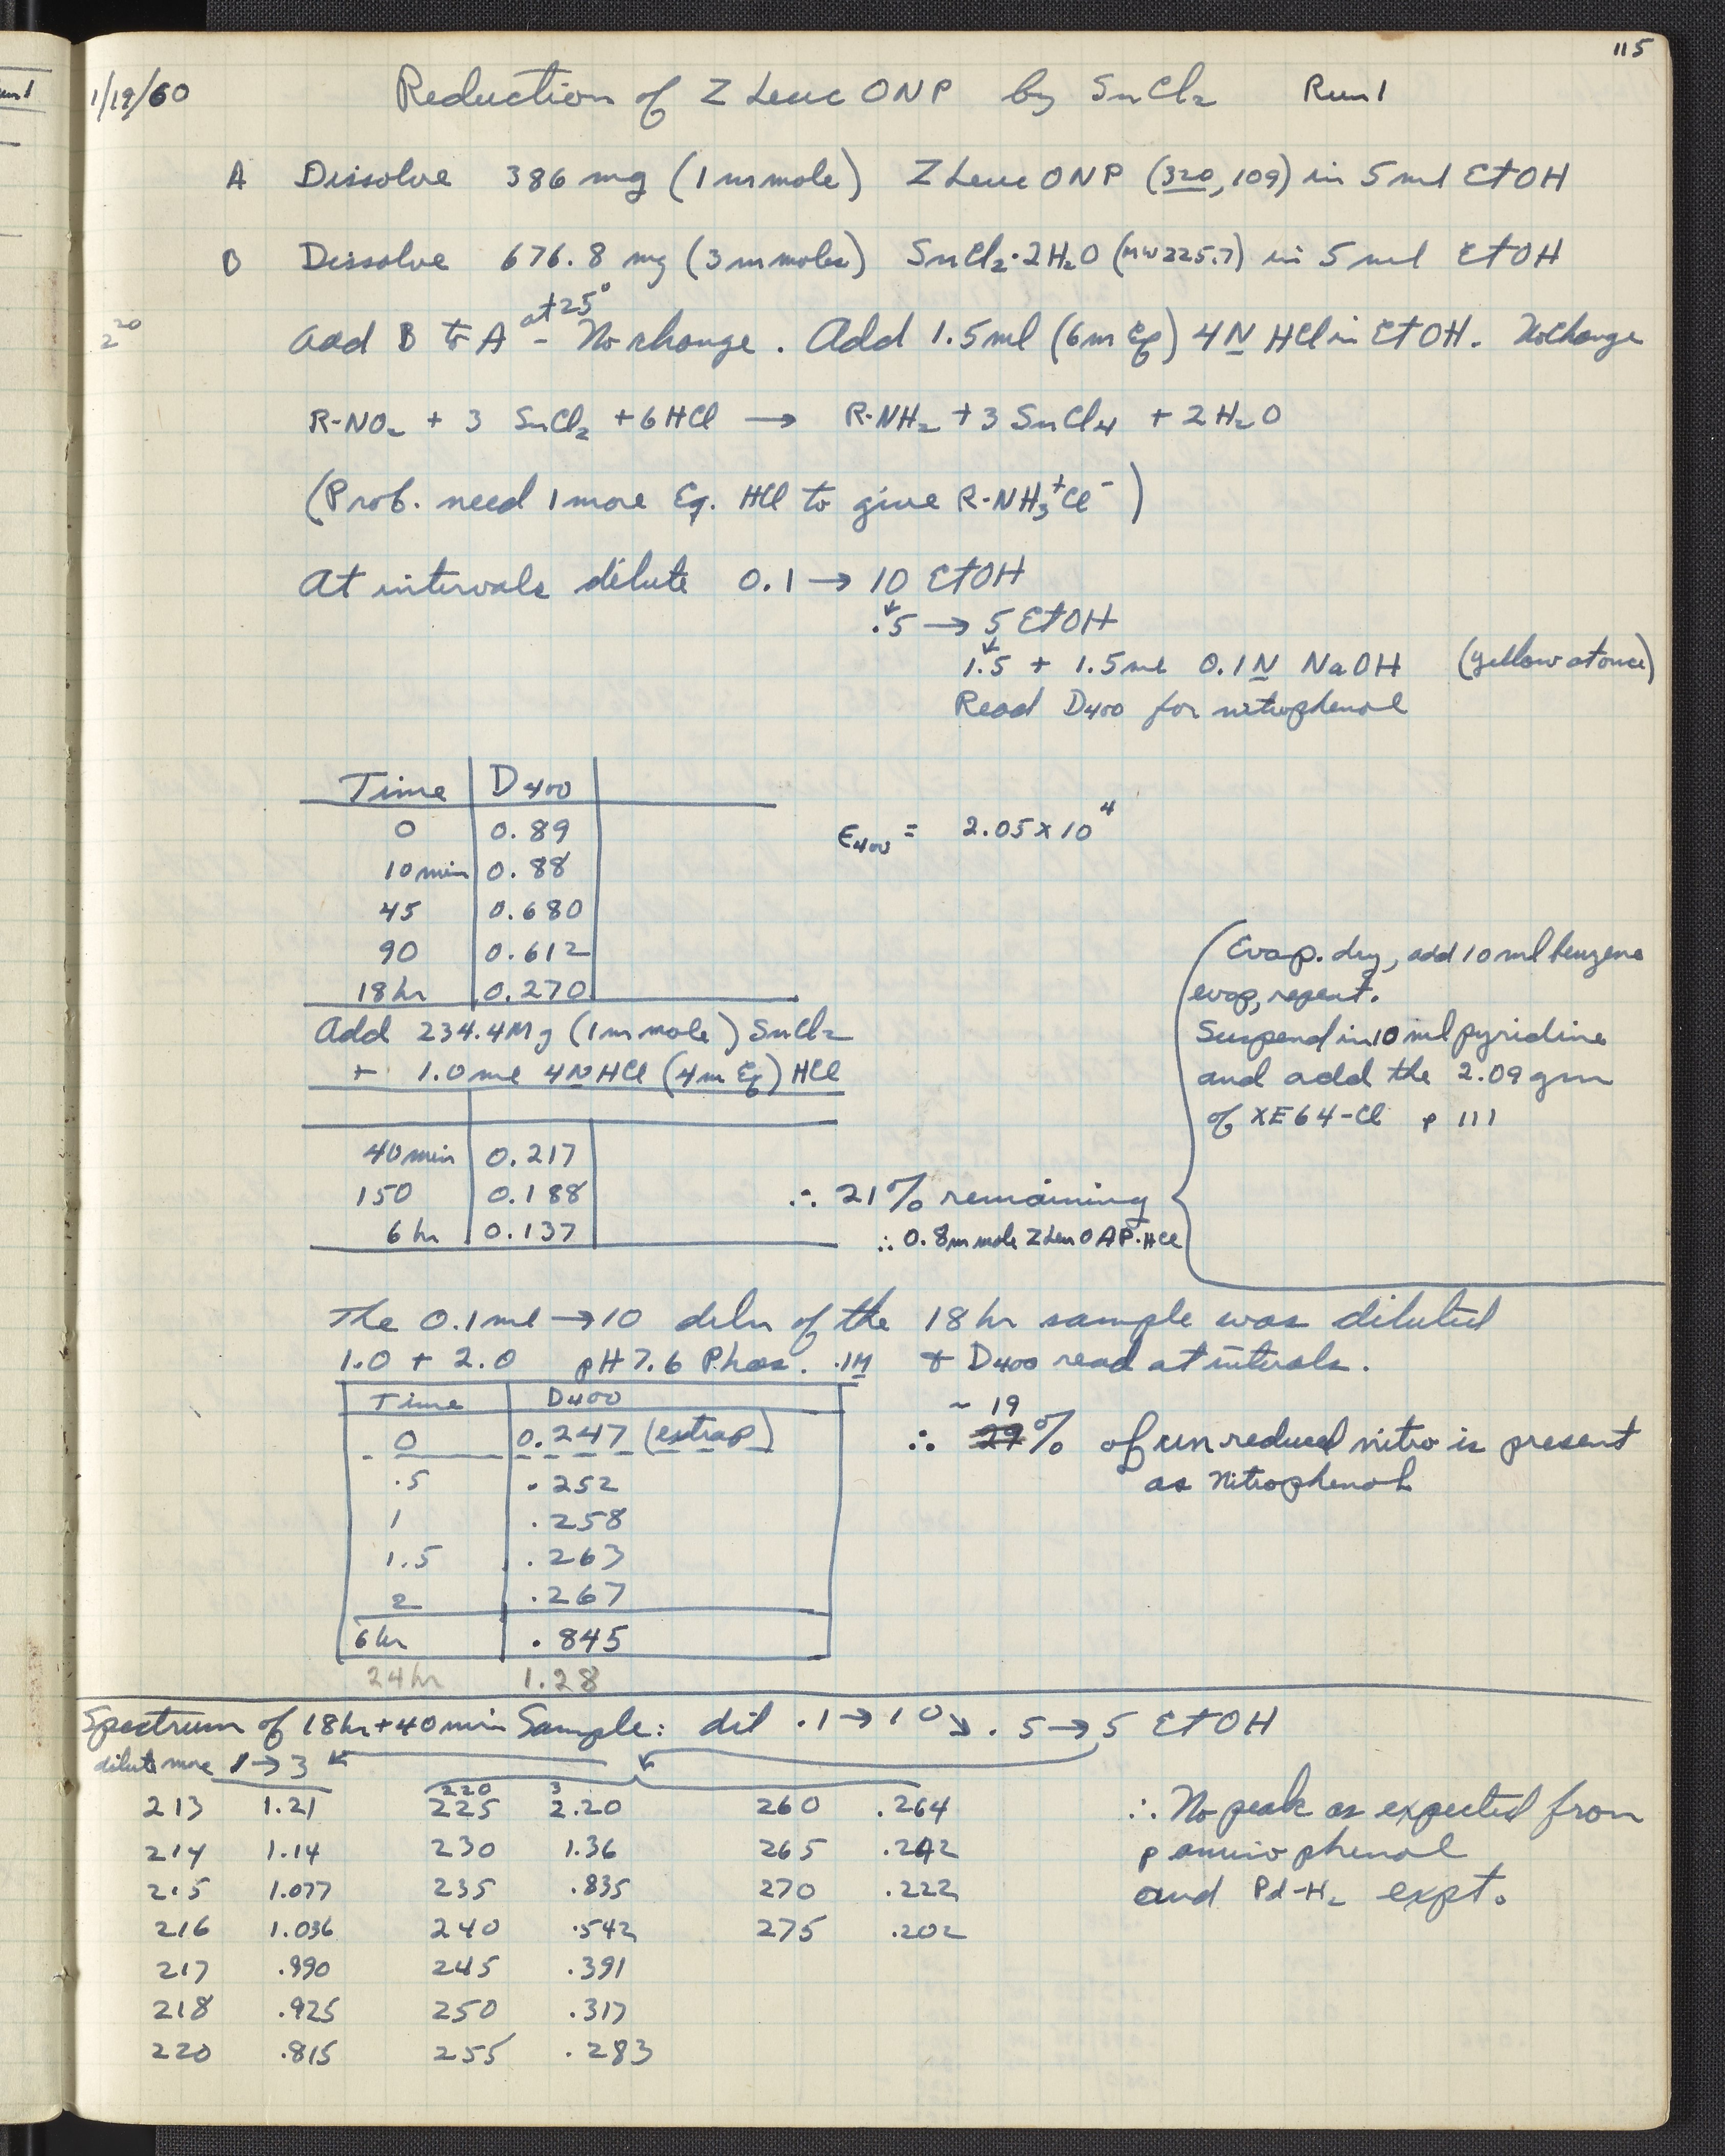 115
1/19/60 Reduction of Z Leuc ONP by SnCl2 Run 1
A Dissolve 386 mg (1 mmole) Z Leuc ONP (320, 109) in 5 ml EtOH
B Dissolve 676.8 mg (3 mmoles) SnCl2·2H2O (MW 225.7) in 5 ml EtOH
2 20 Add B to A at 25° - No change. Add 1.5 ml (6 m Eq) 4N HCl in EtOH. No change
R-NO2 + 3 SnCl2 + 6 HCl → R-NH2 + 3 SnCl4 + 2 H2O
(Prob. need 1 more Eq. HCl to give R-NH3+Cl-)
At intervals dilute 0.1 → 10 EtOH
.5 → 5 EtOH
1.5 + 1.5 ml 0.1N NaOH (yellow at once)
Read D400 for nitrophenol
Time D400
0 0.89
10 min 0.88
45 0.680
90 0.612
18 hr 0.270
ε400 = 2.05 x 10^4
Add 234.4 Mg (1 mmole) SnCl2
+ 1.0 ml 4N HCl (4 m Eq) HCl
40 min 0.217
150 0.188
6 hr 0.137
∴ 21% remaining
∴ 0.8 m mole Z Leu OAP·HCl
(Evap. dry, add 10 ml benzene
evap, repeat.
Suspend in 10 ml pyridine
and add the 2.09 gm
of XE64-Cl p 111
The 0.1 ml → 10 diln of the 18 hr sample was diluted
1.0 + 2.0 pH 7.6 Phos. .1M & D400 read at intervals.
Time D400
0 0.247 (extrap)
.5 .252
1 .258
1.5 .263
2 .267
6 hr .845
24 hr 1.28
~ 19
∴ 29% of unreduced nitro is present
as nitrophenol
Spectrum of 18 hr + 40 min Sample: dil .1 → 10 ↘ .5 → 5 EtOH
dilute more 1 → 3
220 3
213 1.21 225 2.20 260 .264
214 1.14 230 1.36 265 .242
215 1.077 235 .835 270 .222
216 1.036 240 .542 275 .202
217 .990 245 .391
218 .925 250 .317
220 .815 255 .283
∴ No peak as expected from
p amino phenol
and Pd-H2 expt.